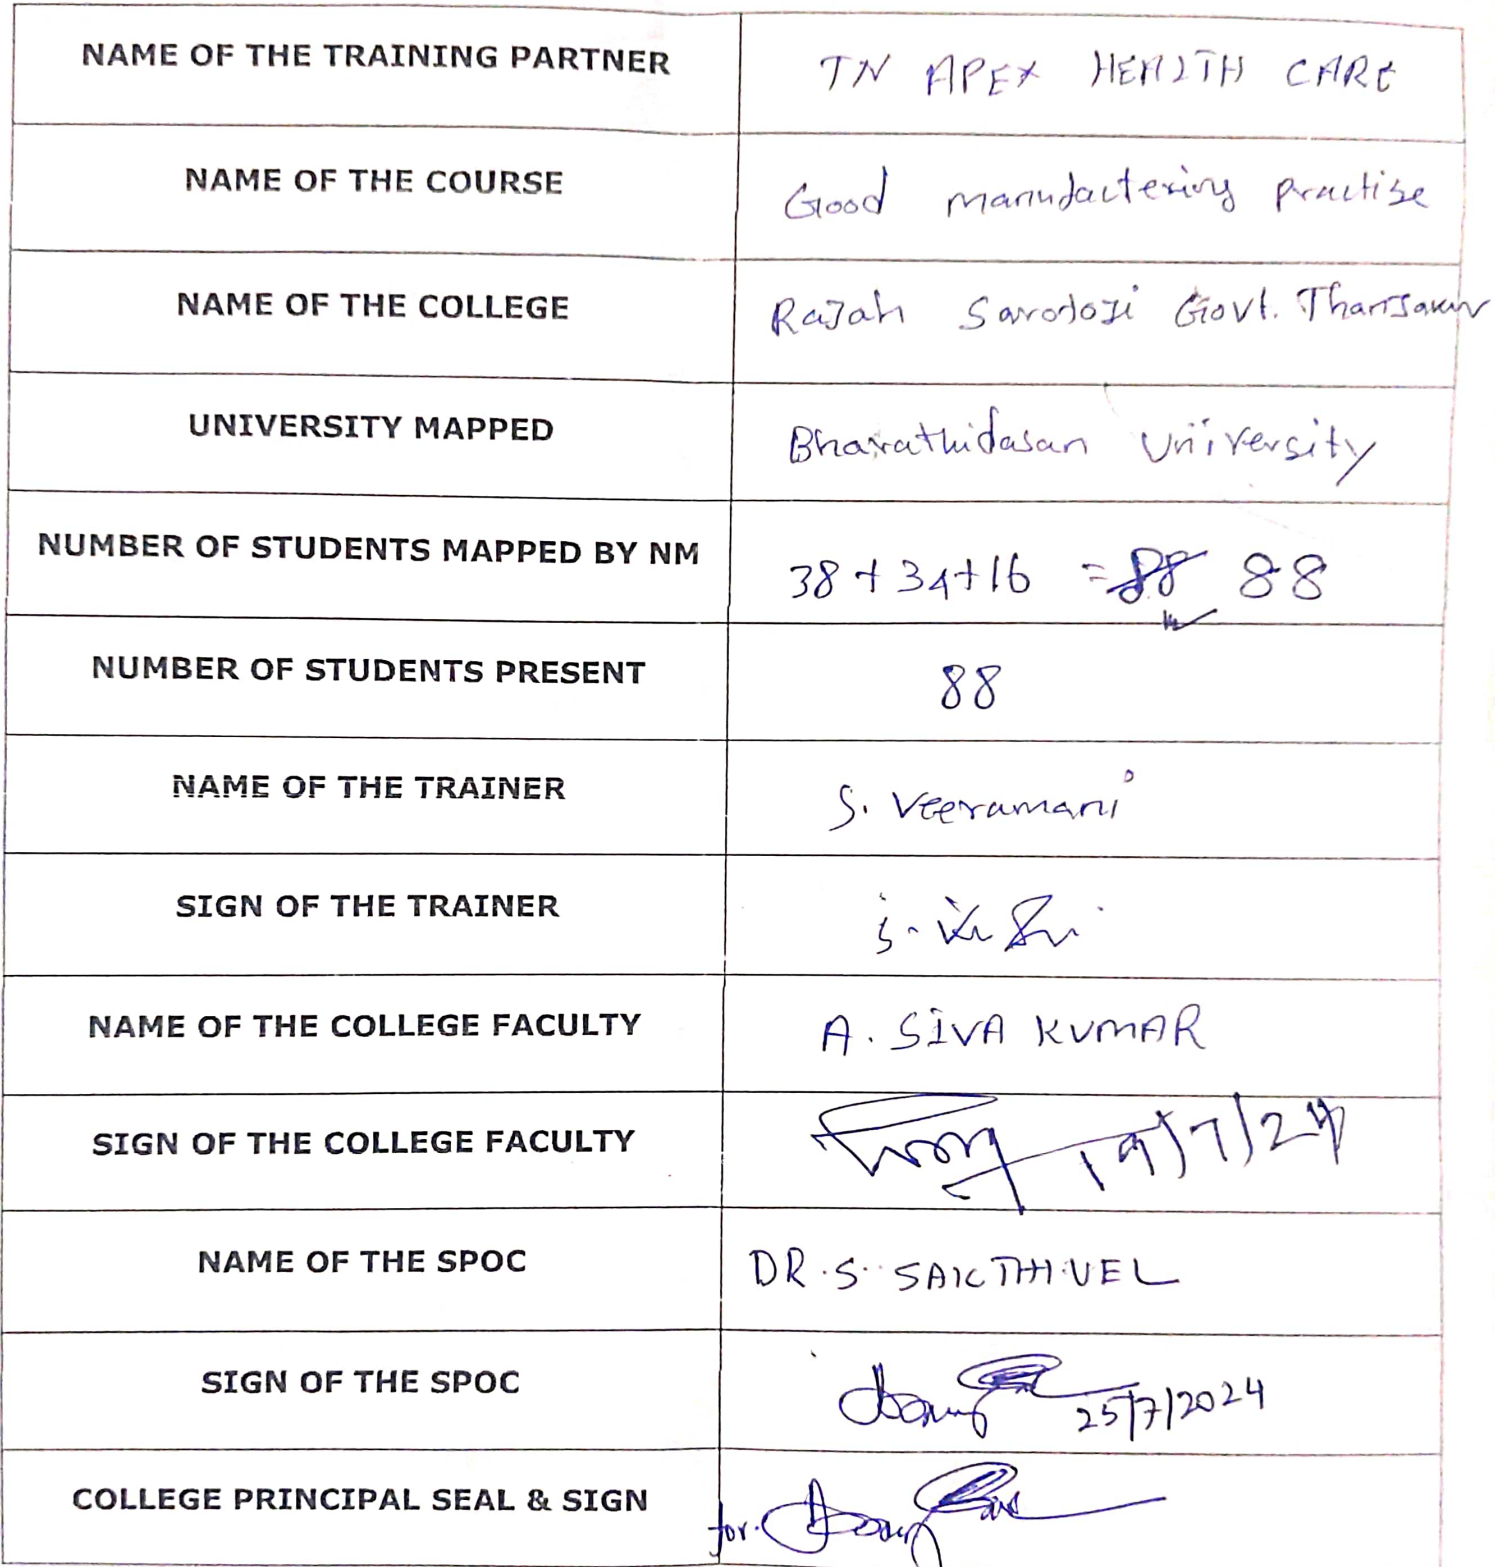 NAME OF THE TRAINING PARTNER TN APEX HEALTH CARE
NAME OF THE COURSE Good manufactering practise
NAME OF THE COLLEGE Rajah Sarofoji Govt. Thanjavur
UNIVERSITY MAPPED Bharathidasan University
NUMBER OF STUDENTS MAPPED BY NM 38+34+16 = 88 88
NUMBER OF STUDENTS PRESENT 88
NAME OF THE TRAINER S. Veeramani
SIGN OF THE TRAINER
NAME OF THE COLLEGE FACULTY A. SIVA KUMAR
SIGN OF THE COLLEGE FACULTY 19/7/24
NAME OF THE SPOC DR. S. SAKTHIVEL
SIGN OF THE SPOC 25/7/2024
COLLEGE PRINCIPAL SEAL & SIGN for.